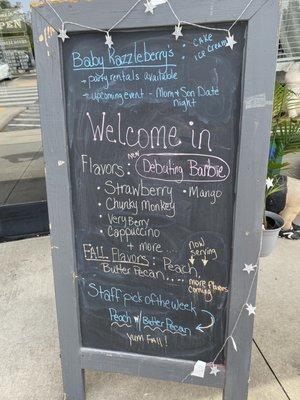 Baby Razzleberry's : Cake
Ice Cream
→ party rentals available
→ upcoming event - Mom and Son Date
night
Welcome in
Flavors: new Debuting Barbie
• Strawberry • Mango
• Chunky Monkey
• Very Berry
• Cappuccino
+ more...
now
serving
FALL Flavors: Peach,
Butter Pecan....
more flavors
coming
Staff pick of the week
Peach w/ Butter Pecan
yum Fall!